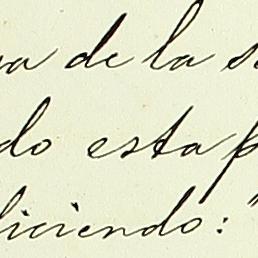 de la
do esta
diciendo: "